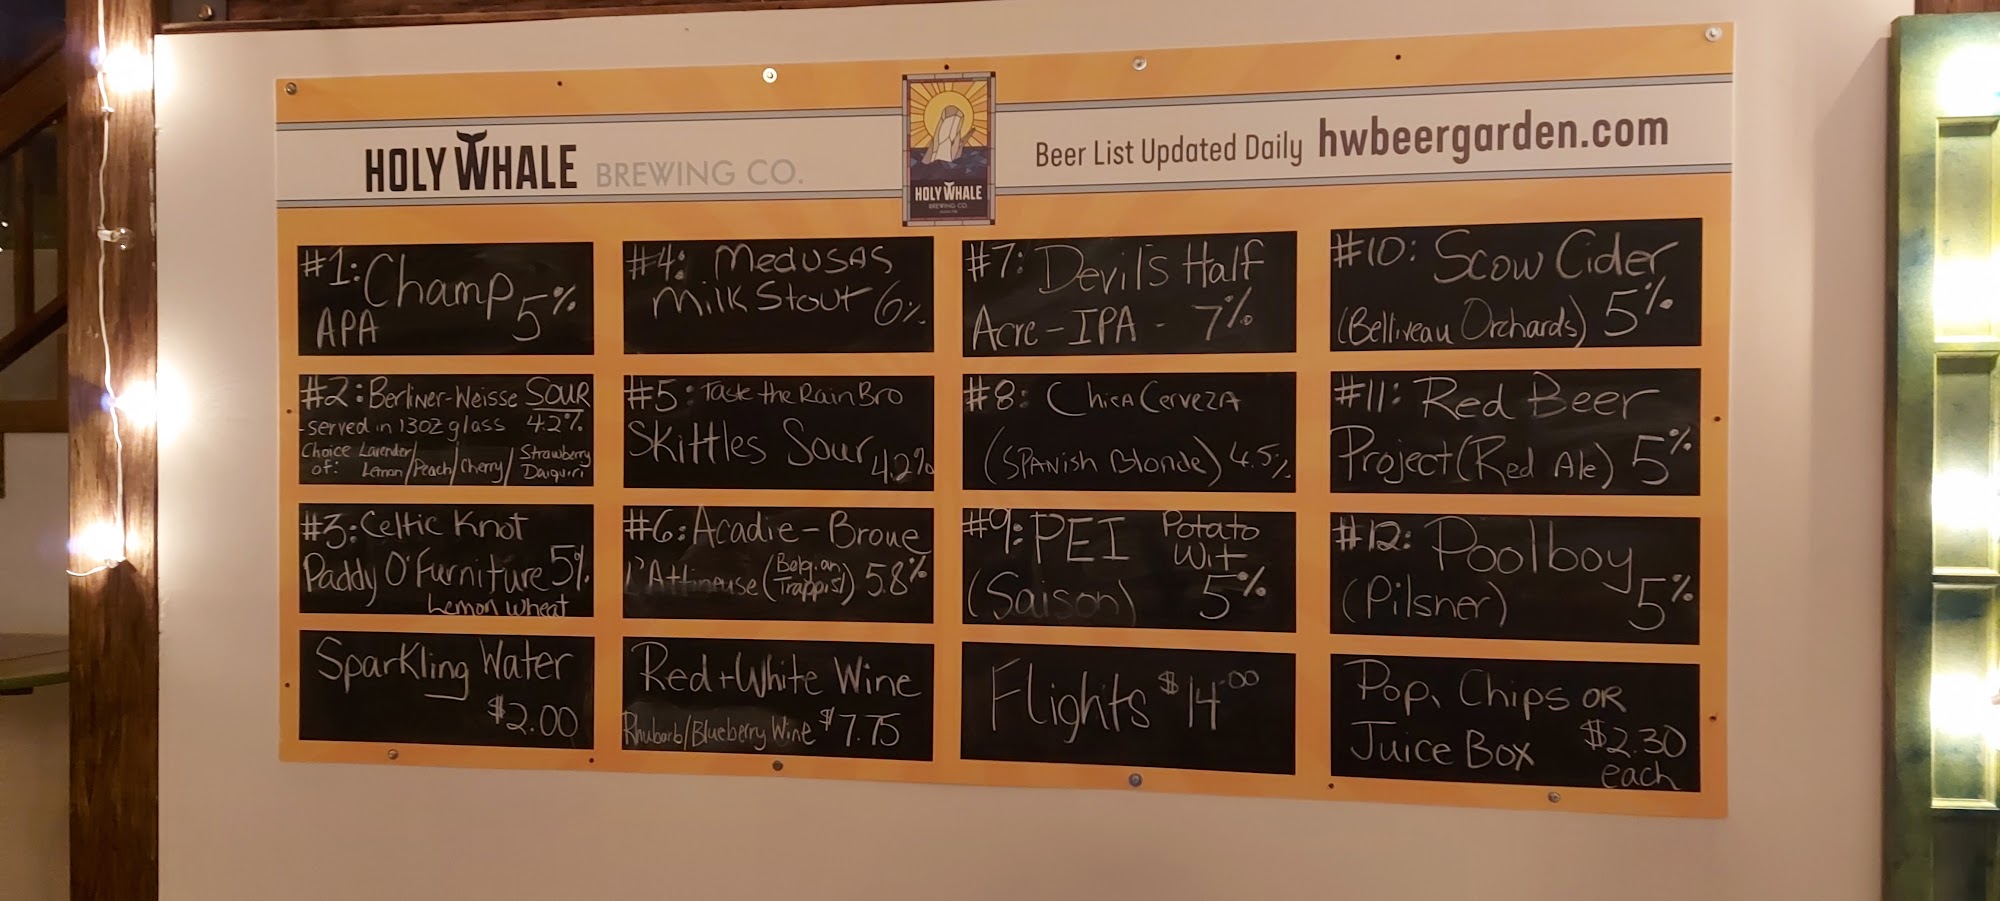 HOLY WHALE BREWING CO.
HOLY WHALE
BREWING CO.
Beer List Updated Daily hwbeergarden.com
#1: Champ 5%
APA
#2: Berliner-Weisse SOUR
-served in 13oz glass 4.2%
Choice of: Lavender Lemon/Peach/Cherry/Strawberry Daiquiri
#3: Celtic Knot
Paddy O'Furniture 5%
Lemon Wheat
Sparkling Water
$2.00
#4: Medusas
Milk Stout 6%
#5: Taste the RainBro
Skittles Sour 4.2%
#6: Acadie-Broue
L'Attineuse (Belgian Trappist) 5.8%
Red + White Wine
Rhubarb/Blueberry Wine $7.75
#7: Devil's Half
Acre - IPA - 7%
#8: Chica Cerveza
(Spanish Blonde) 4.5%
#9: PEI Potato Wit
(Saison) 5%
Flights $14.00
#10: Scow Cider
(Belliveau Orchards) 5%
#11: Red Beer
Project (Red Ale) 5%
#12: Poolboy
(Pilsner) 5%
Pop, Chips OR
Juice Box $2.30
each